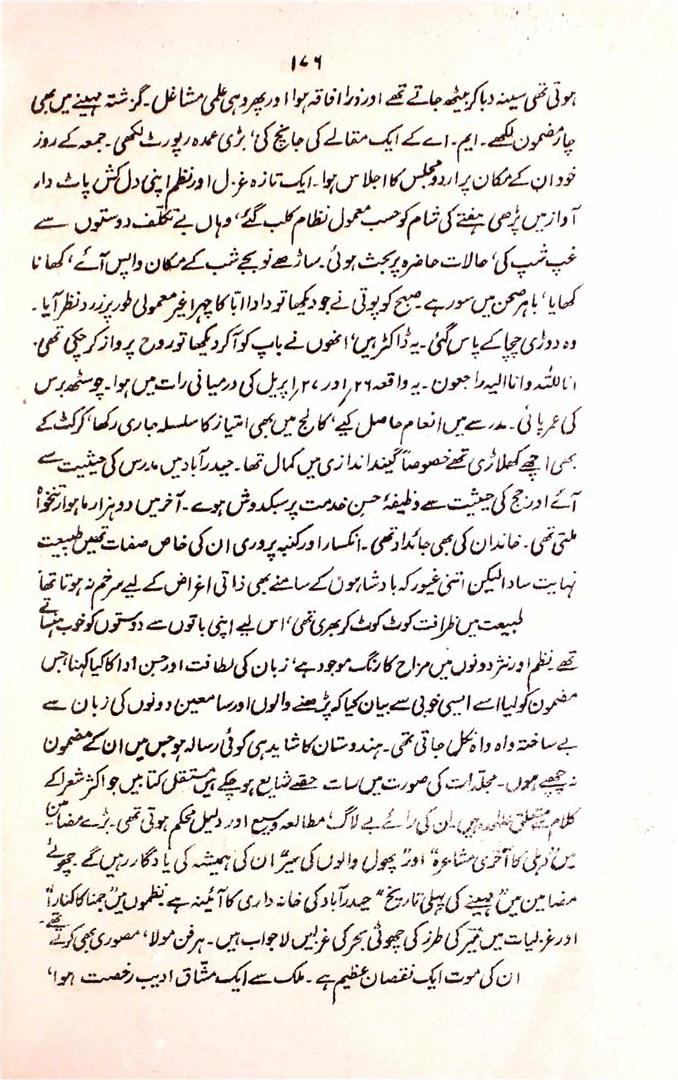 ۱۷۶
ہوتی تھی سینہ دبا کر بیٹھ جاتے تھے اور ذرا افاقہ ہوا اور پھر وہی علمی مشاغل۔ گزشتہ مہینے میں بھی
چار مضمون لکھے۔ ایم۔ اے کے ایک مقالے کی جانچ کی، بڑی عمدہ رپورٹ لکھی۔ جمعہ کے روز
خود ان کے مکان پر اردو مجلس کا اجلاس ہوا۔ ایک تازہ غزل اور نظم اپنی دل کش پاٹ دار
آواز میں پڑھی ہفتے کی شام کو حسب معمول نظام کلب گئے، وہاں بے تکلف دوستوں سے
غپ شپ کی، حالات حاضرہ پر بحث ہوئی۔ ساڑھے نو بجے شب کے مکان واپس آئے، کھانا
کھایا، باہر صحن میں سو رہے۔ صبح کو پوتی نے جو دیکھا تو دادا ابا کا چہرا غیر معمولی طور پر زرد نظر آیا۔
وہ دوڑی چچا کے پاس گئی۔ یہ ڈاکٹر ہیں، انھوں نے باپ کو آکر دیکھا تو روح پرواز کر چکی تھی
انا للہ وانا الیہ راجعون۔ یہ واقعہ ۲۶؍ اور ۲۷؍ اپریل کی درمیانی رات میں ہوا۔ چوسٹھ برس
کی عمر پائی۔ مدرسے میں انعام حاصل کیے، کالج میں بھی امتیاز کا سلسلہ جاری رکھا، کرکٹ کے
بھی اچھے کھلاڑی تھے خصوصاً گیند اندازی میں کمال تھا۔ حیدرآباد میں مدرس کی حیثیت سے
آئے اور جج کی حیثیت سے وظیفۂ حسن خدمت پر سبکدوش ہوے۔ آخر میں دو ہزار ماہوار تنخواہ
ملتی تھی۔ خاندان کی بھی جائداد تھی۔ انکسار اور کنبہ پروری ان کی خاص صفات تھیں طبیعت
نہایت سادا لیکن اتنی غیور کہ بادشاہوں کے سامنے بھی ذاتی اغراض کے لیے سر خم نہ ہوتا تھا
طبیعت میں ظرافت کوٹ کوٹ کر بھری تھی، اس لیے اپنی باتوں سے دوستوں کو خوب ہنساتے
تھے۔ نظم اور نثر دونوں میں مزاح کا رنگ موجود ہے، زبان کی لطافت اور حسن ادا کا کیا کہنا، جس
مضمون کو لیا اسے ایسی خوبی سے بیان کیا کہ پڑھنے والوں اور سامعین دونوں کی زبان سے
بے ساختہ واہ واہ نکل جاتی تھی۔ ہندوستان کا شاید ہی کوئی رسالہ ہو جس میں ان کے مضمون
نہ چھپے ہوں۔ مجلدات کی صورت میں سات حصے شایع ہو چکے ہیں مستقل کتابیں جو اکثر شعرا کے
کلام سے متعلق ہیں۔ ان کی رائے بے لاگ، مطالعہ وسیع اور دلیل محکم ہوتی تھی۔ بڑے مضامین
میں "دہلی کا آخری مشاعرہ" اور "پھول والوں کی سیر" ان کی ہمیشہ کی یادگار رہیں گے۔ چھوٹے
مضامین میں "مہینے کی پہلی تاریخ" حیدرآباد کی خانہ داری کا آئینہ ہے۔ نظموں میں "جمنا کا کنارا"
اور غزلیات میں میر کی طرز کی چھوٹی بحر کی غزلیں لاجواب ہیں۔ ہر فن مولا، مصوری بھی کرتے تھے۔
ان کی موت ایک نقصان عظیم ہے۔ ملک سے ایک مشّاق ادیب رخصت ہوا،